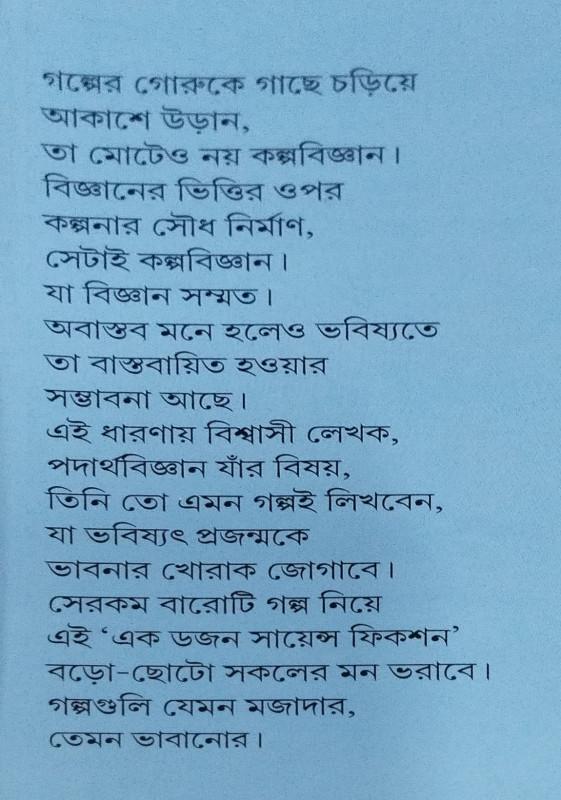 গল্পের গোরুকে গাছে চড়িয়ে
আকাশে উড়ান,
তা মোটেও নয় কল্পবিজ্ঞান।
বিজ্ঞানের ভিত্তির ওপর
কল্পনার সৌধ নির্মাণ,
সেটাই কল্পবিজ্ঞান।
যা বিজ্ঞান সম্মত।
অবাস্তব মনে হলেও ভবিষ্যতে
তা বাস্তবায়িত হওয়ার
সম্ভাবনা আছে।
এই ধারণায় বিশ্বাসী লেখক,
পদার্থবিজ্ঞান যাঁর বিষয়,
তিনি তো এমন গল্পই লিখবেন,
যা ভবিষ্যৎ প্রজন্মকে
ভাবনার খোরাক জোগাবে।
সেরকম বারোটি গল্প নিয়ে
এই ‘এক ডজন সায়েন্স ফিকশন’
বড়ো-ছোটো সকলের মন ভরাবে।
গল্পগুলি যেমন মজাদার,
তেমন ভাবানোর।